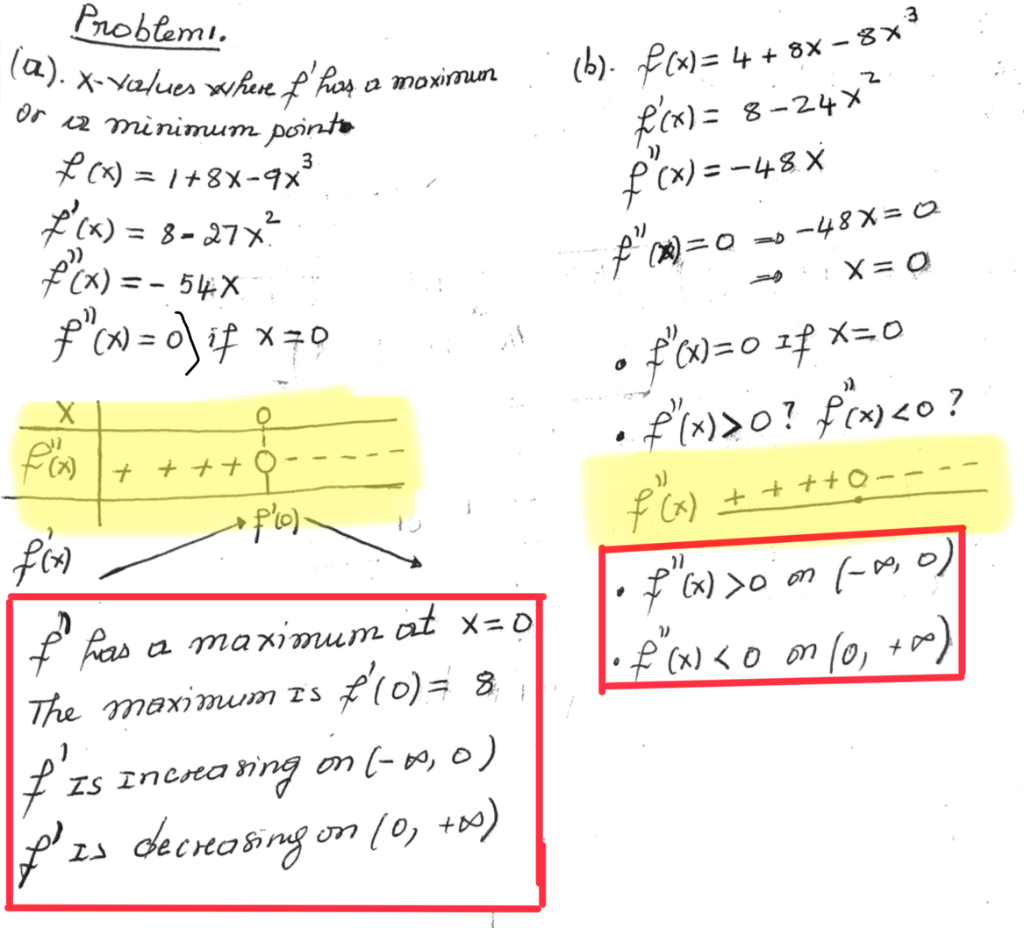 Problem 1.
(a). x-values where f' has a maximum
or a minimum point
f(x) = 1+8x-9x³
f'(x) = 8-27x²
f''(x) = - 54x
f''(x) = 0 } if x=0
x 0
f''(x) + + + + 0 - - - - - -
f'(0)
f'(x)
f' has a maximum at x=0
The maximum is f'(0) = 8
f' is increasing on (-∞, 0)
f' is decreasing on (0, +∞)
(b). f(x) = 4 + 8x - 8x³
f'(x) = 8 - 24x²
f''(x) = -48x
f''(x) = 0 ⇒ -48x = 0
⇒ x = 0
• f''(x) = 0 if x=0
• f''(x) > 0 ? f''(x) < 0 ?
f''(x) + + + + 0 - - - - - -
• f''(x) > 0 on (-∞, 0)
• f''(x) < 0 on (0, +∞)